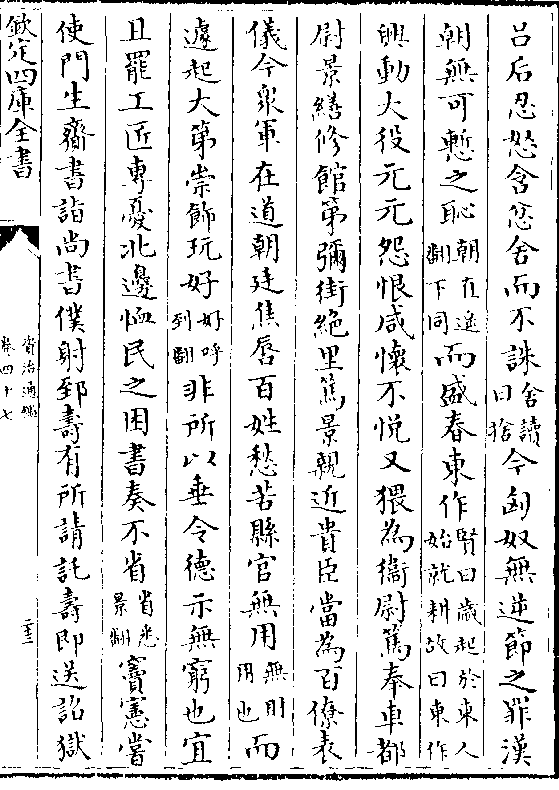 呂后忍怒含忿舍而不誅舍讀曰捨今匈奴無逆節之罪漢
朝無可慙之恥朝直遙翻下同而盛春東作賢曰歲起於東人始就耕故曰東作
興動大役元元怨恨咸懷不悦又猥為衛尉篤奉車都
尉景繕修館第彌街絶里篤景親近貴臣當為百僚表
儀今衆軍在道朝廷焦唇百姓愁苦縣官無用無財用也而
遽起大第崇飾玩好好呼到翻非所以垂令德示無窮也宜
且罷工匠専憂北邊恤民之困書奏不省省悉景翻竇憲嘗
使門生齎書詣尚書僕射郅壽有所請託壽即送詔獄
欽定四庫全書
資治通鑑
卷四十七
二十三